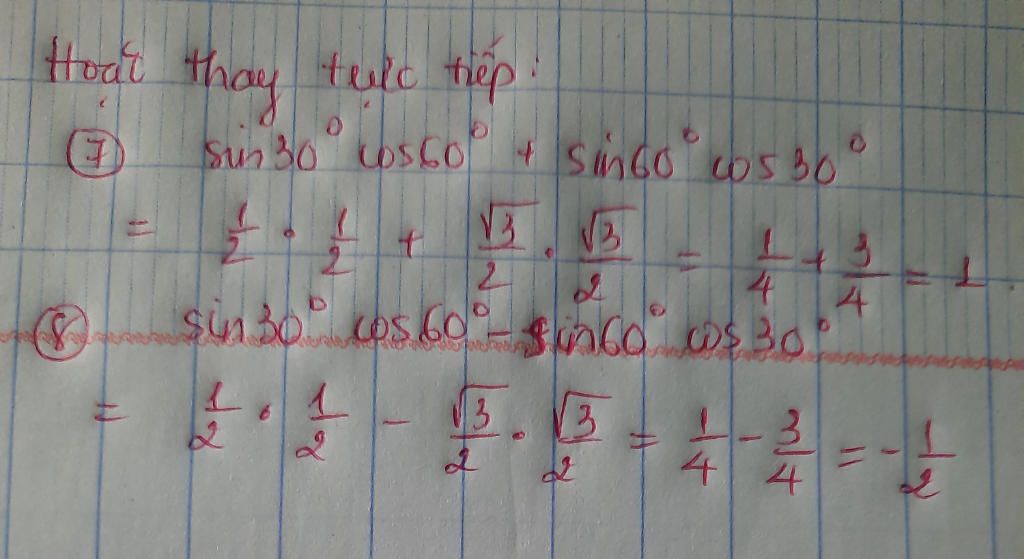 Hoặc thay trực tiếp:
⑦ sin30° cos60° + sin60° cos30°
= 1/2 · 1/2 + √3/2 · √3/2 = 1/4 + 3/4 = 1.
⑧ sin30° cos60° - sin60° cos30°
= 1/2 · 1/2 - √3/2 · √3/2 = 1/4 - 3/4 = - 1/2